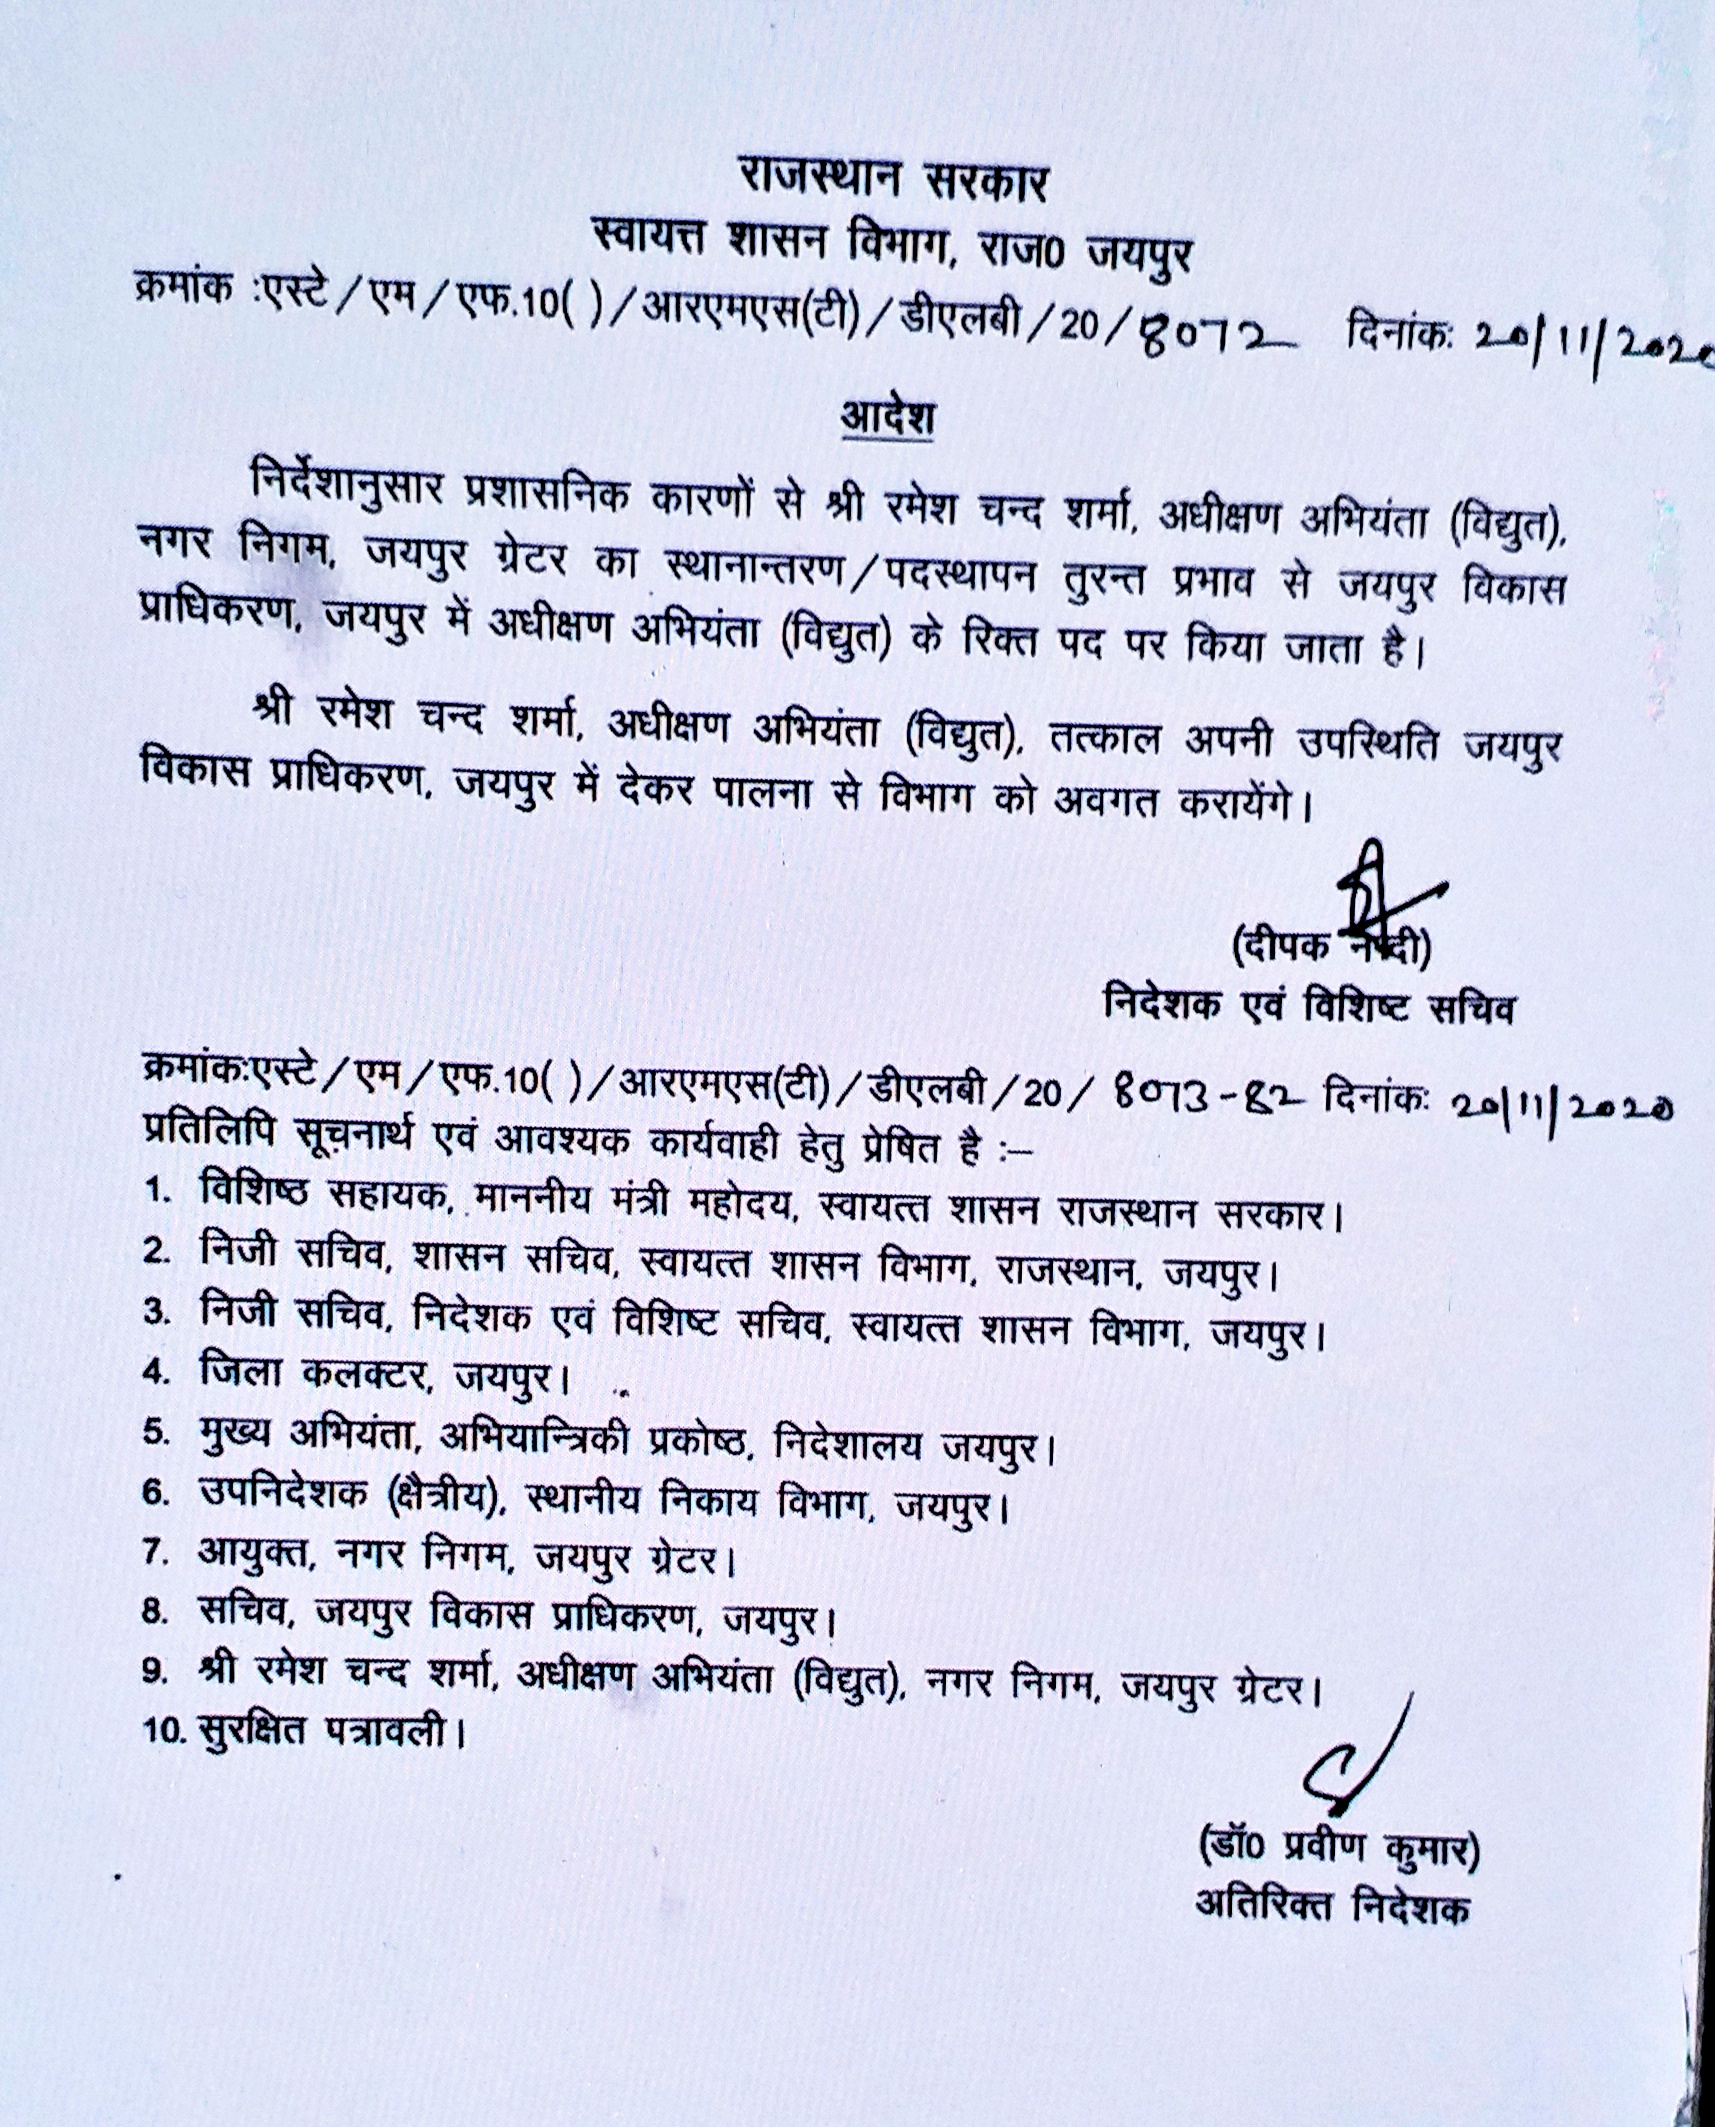 राजस्थान सरकार
स्वायत्त शासन विभाग, राज0 जयपुर
क्रमांक :एस्टे/एम/एफ.10( )/आरएमएस(टी)/डीएलबी/20/8072 दिनांक: 20/11/2020
आदेश
निर्देशानुसार प्रशासनिक कारणों से श्री रमेश चन्द शर्मा, अधीक्षण अभियंता (विद्युत),
नगर निगम, जयपुर ग्रेटर का स्थानान्तरण/पदस्थापन तुरन्त प्रभाव से जयपुर विकास
प्राधिकरण, जयपुर में अधीक्षण अभियंता (विद्युत) के रिक्त पद पर किया जाता है।
श्री रमेश चन्द शर्मा, अधीक्षण अभियंता (विद्युत), तत्काल अपनी उपस्थिति जयपुर
विकास प्राधिकरण, जयपुर में देकर पालना से विभाग को अवगत करायेंगे।
(दीपक नन्दी)
निदेशक एवं विशिष्ट सचिव
क्रमांक:एस्टे/एम/एफ.10( )/आरएमएस(टी)/डीएलबी/20/ 8073-82 दिनांक: 20/11/2020
प्रतिलिपि सूचनार्थ एवं आवश्यक कार्यवाही हेतु प्रेषित है :–
1. विशिष्ठ सहायक, माननीय मंत्री महोदय, स्वायत्त शासन राजस्थान सरकार।
2. निजी सचिव, शासन सचिव, स्वायत्त शासन विभाग, राजस्थान, जयपुर।
3. निजी सचिव, निदेशक एवं विशिष्ट सचिव, स्वायत्त शासन विभाग, जयपुर।
4. जिला कलक्टर, जयपुर।
5. मुख्य अभियंता, अभियान्त्रिकी प्रकोष्ठ, निदेशालय जयपुर।
6. उपनिदेशक (क्षैत्रीय), स्थानीय निकाय विभाग, जयपुर।
7. आयुक्त, नगर निगम, जयपुर ग्रेटर।
8. सचिव, जयपुर विकास प्राधिकरण, जयपुर।
9. श्री रमेश चन्द शर्मा, अधीक्षण अभियंता (विद्युत), नगर निगम, जयपुर ग्रेटर।
10. सुरक्षित पत्रावली।
(डॉ0 प्रवीण कुमार)
अतिरिक्त निदेशक